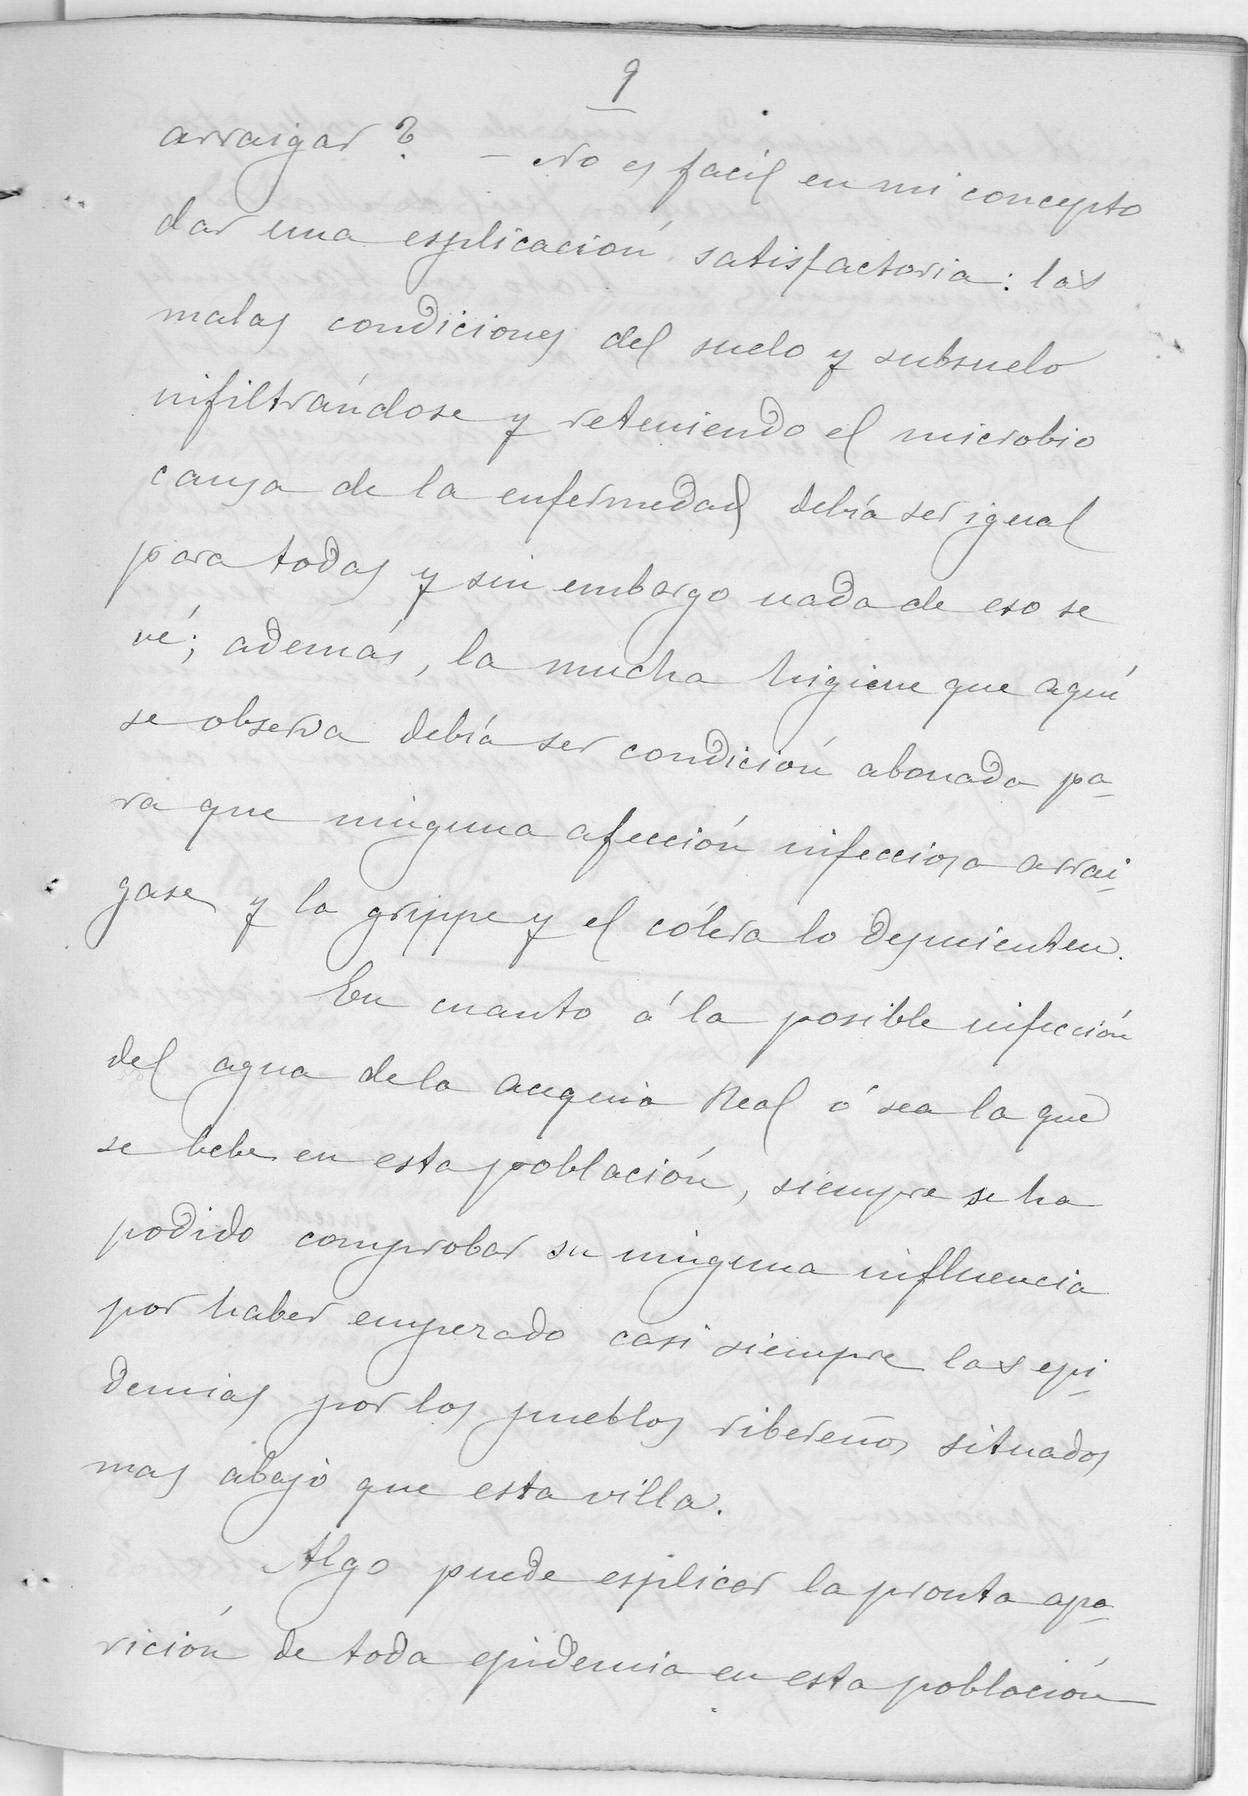 9
arraigar? – No es facil en mi concepto
dar una esplicación satisfactoria: las
malas condiciones del suelo y subsuelo
infiltrándose y reteniendo el microbio
causa de la enfermedad debía ser igual
para todas y sin embargo nada de eso se
vé; además, la mucha higiene que aquí
se observa debía ser condición abonada pa-
ra que ninguna afección infecciosa arrai-
gase y la grippe y el cólera lo desmienten.
En cuanto á la posible infección
del agua de la acequia Real ó sea la que
se bebe en esta población, siempre se ha
podido comprobar su ninguna influencia
por haber empezado casi siempre las epi-
demias por los pueblos ribereños situados
mas abajo que esta villa.
Algo puede esplicar la pronta apa-
rición de toda epidemia en esta población